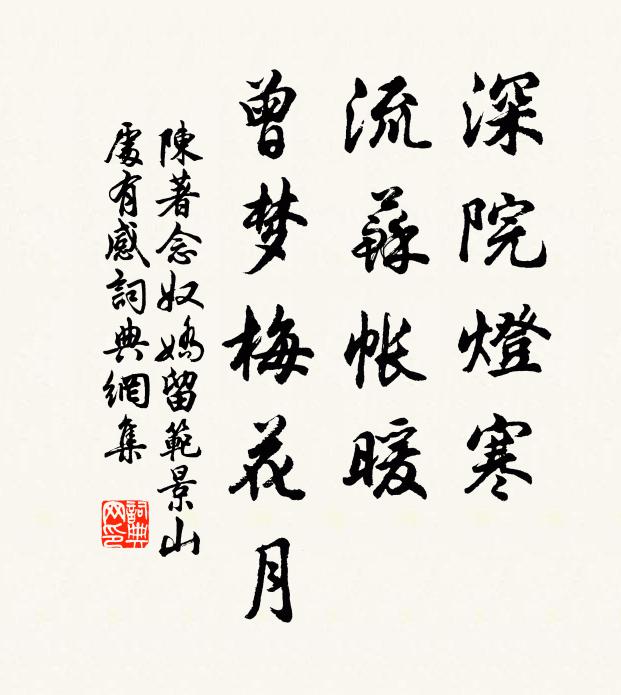 深院燈寒
流蘇帳暖
曾梦梅花月
陳著念奴嬌留範景山
處有感詞典網集
詞典
网印